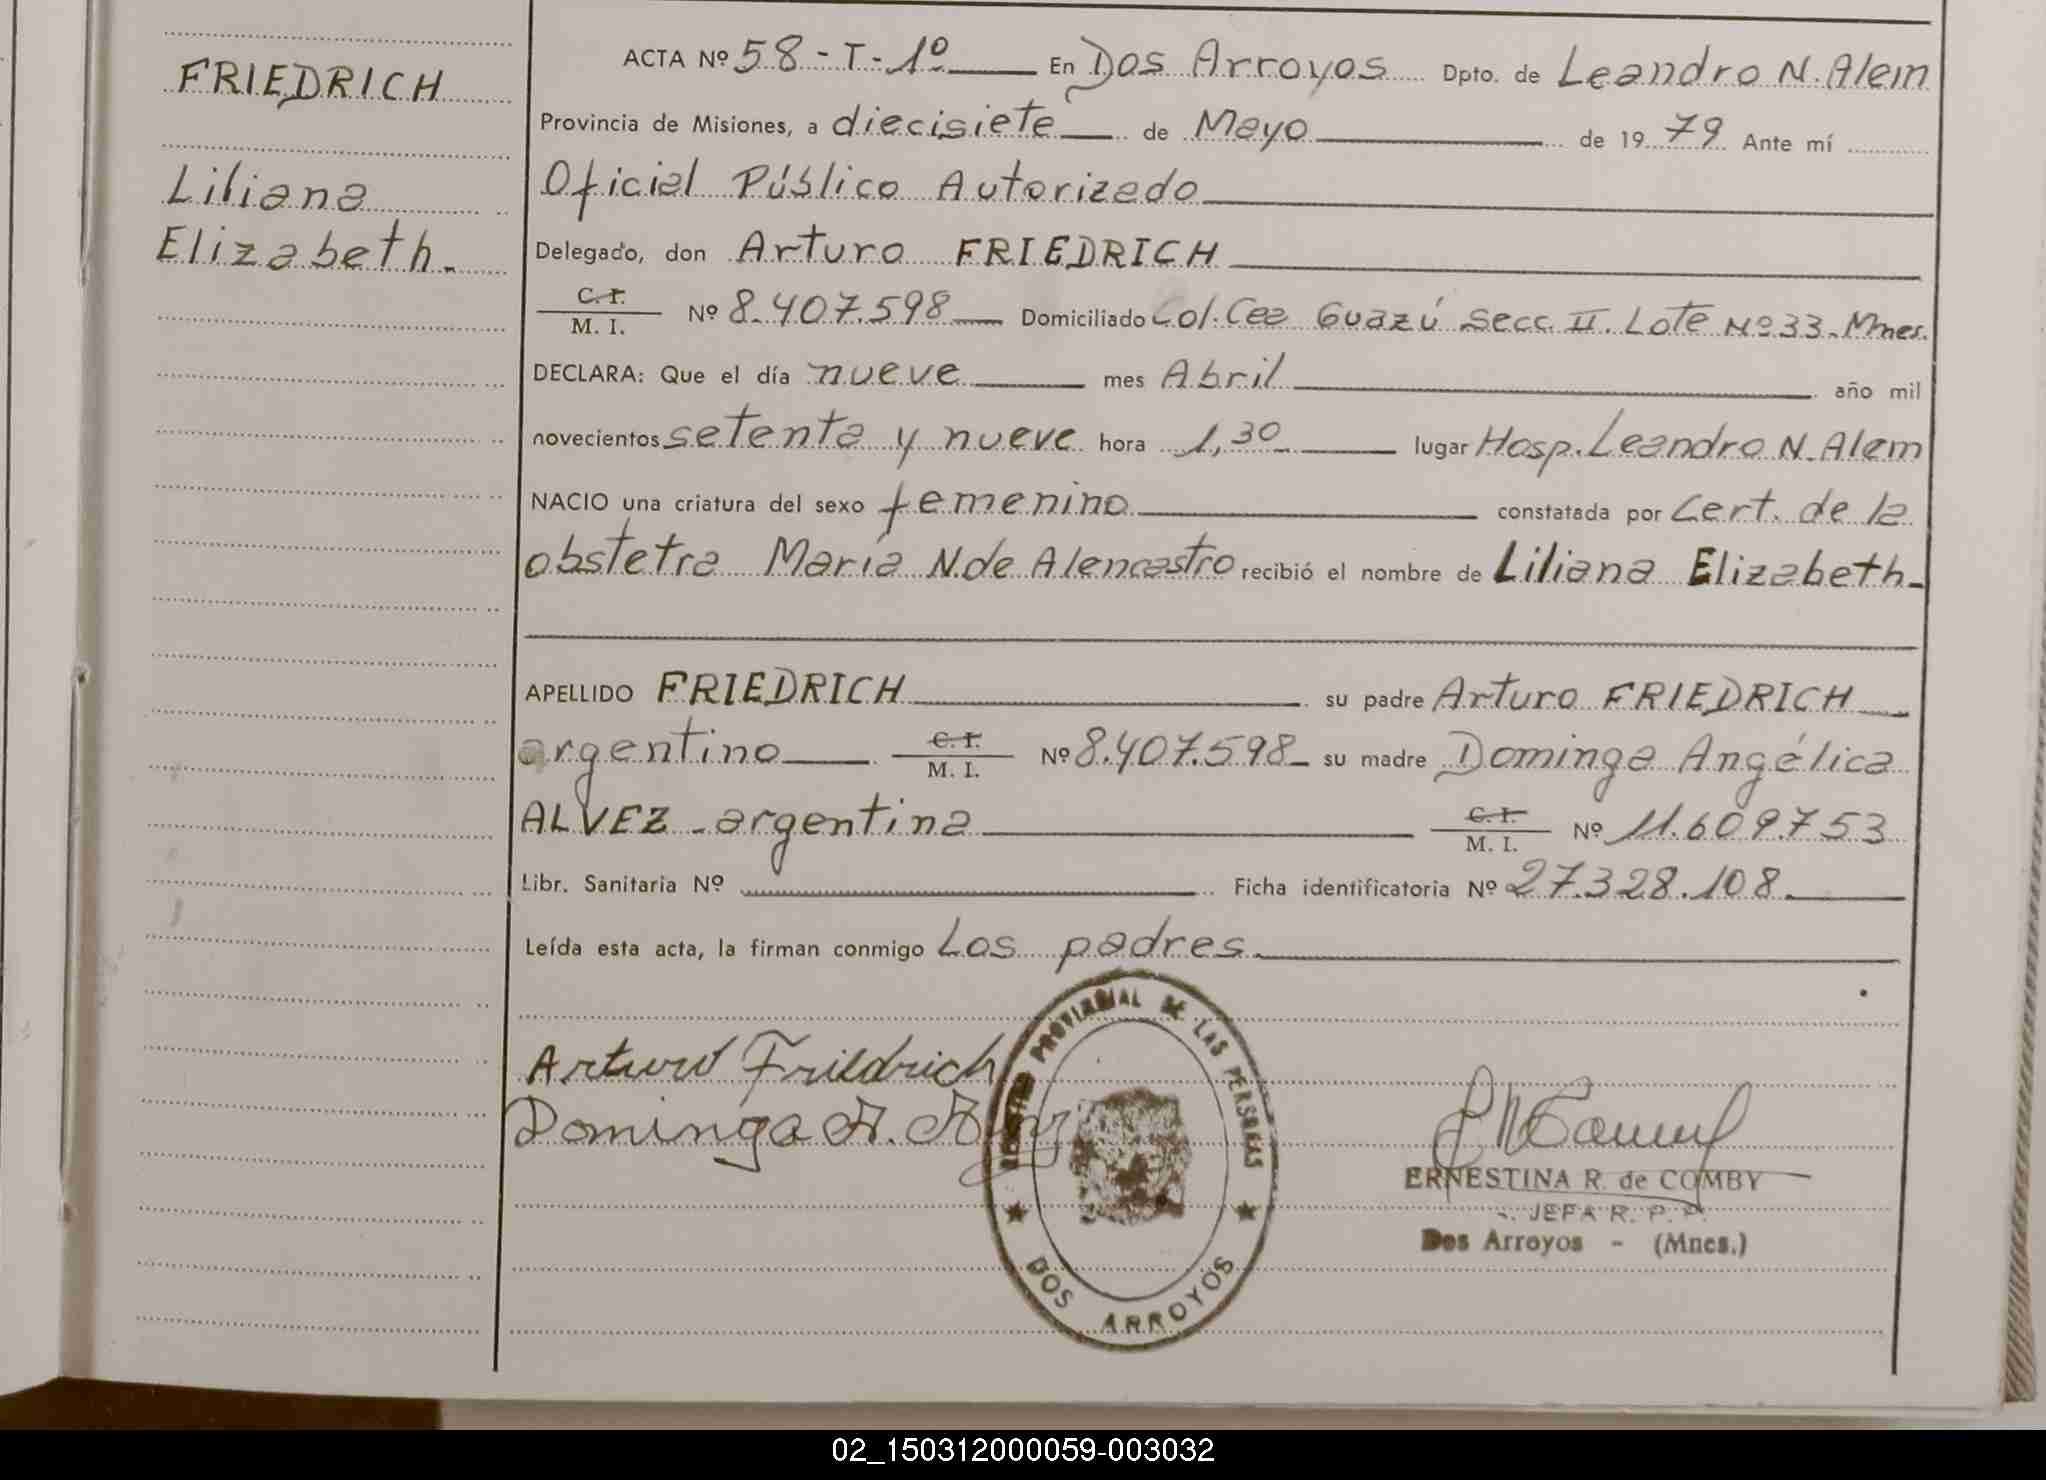 FRIEDRICH
Liliana
Elizabeth.
ACTA Nº 58 - T - 1º En Dos Arroyos Dpto. de Leandro N. Alem
Provincia de Misiones, a diecisiete de Mayo de 19 79 Ante mí
Oficial Público Autorizado
Delegado, don Arturo FRIEDRICH
C. I.
M. I. Nº 8.407.598 Domiciliado Col. Caa Guazú Secc. II. Lote Nº 33. Mnes.
DECLARA: Que el día nueve mes Abril año mil
novecientos setenta y nueve hora 1,30 lugar Hosp. Leandro N. Alem
NACIO una criatura del sexo femenino constatada por Cert. de la
obstetra María N. de Alencastro recibió el nombre de Liliana Elizabeth.
APELLIDO FRIEDRICH su padre Arturo FRIEDRICH
argentino C. I. M. I. Nº 8.407.598 su madre Dominga Angélica
ALVEZ - argentina C. I. M. I. Nº 11.609.753
Libr. Sanitaria Nº Ficha identificatoria Nº 27.328.108.
Leída esta acta, la firman conmigo Los padres.
Arturo Friedrich
Dominga A.
REGISTRO PROVINCIAL DE LAS PERSONAS
DOS ARROYOS
ERNESTINA R. de COMBY
JEFA R. P. P.
Dos Arroyos - (Mnes.)
02_150312000059-003032